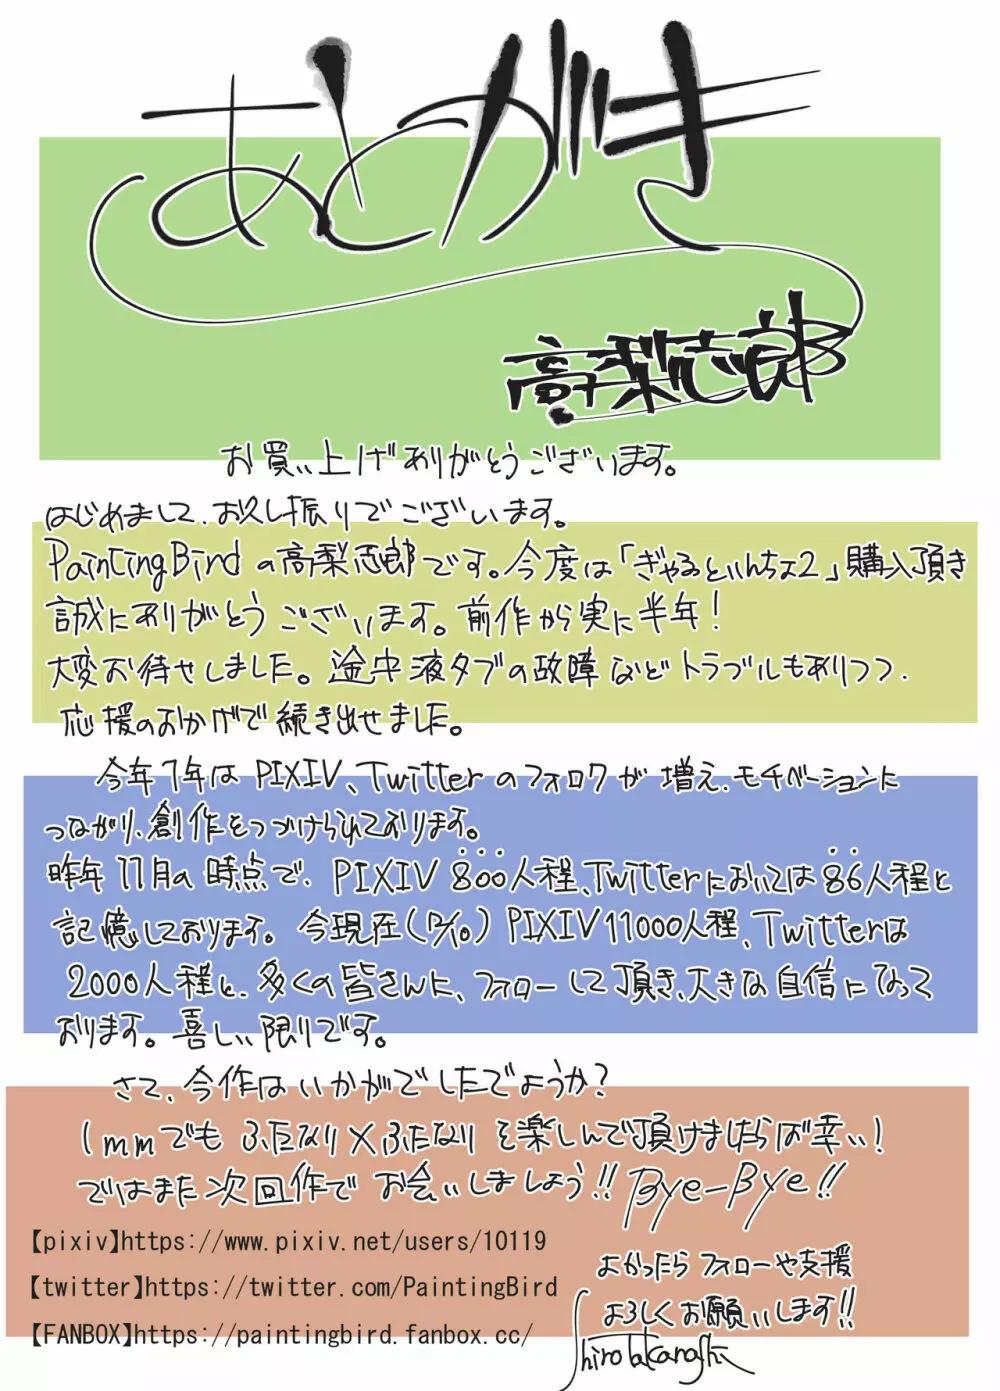 あとがき
高梨志郎
お買い上げありがとうございます。
はじめまして、お久し振りでございます。
PaintingBirdの高梨志郎です。今度は「ぎゃるといんちょ2」購入頂き
誠にありがとうございます。前作から実に半年！
大変お待せしました。途中液タブの故障などトラブルもありつつ、
応援のおかげで続き出せました。
今年1年はPIXIV、Twitterのフォロワが増え、モチベーションに
つながり、創作をつづけられております。
昨年11月の時点で、PIXIV 800人程、Twitterにおいては86人程と
記憶しております。今現在(12/10) PIXIV11000人程、Twitterは
2000人程と、多くの皆さんに、フォローして頂き、大きな自信になって
おります。喜しい限りです。
さて、今作はいかがでしたでようか？
1mmでも ふたなり×ふたなり を楽しんで頂けましたらば幸い！
ではまた次回作で お会いしましょう!! Bye-Bye!!
【pixiv】https://www.pixiv.net/users/10119
【twitter】https://twitter.com/PaintingBird
【FANBOX】https://paintingbird.fanbox.cc/
よかったら フォローや支援
よろしくお願いします!!
ShiroTakanashi